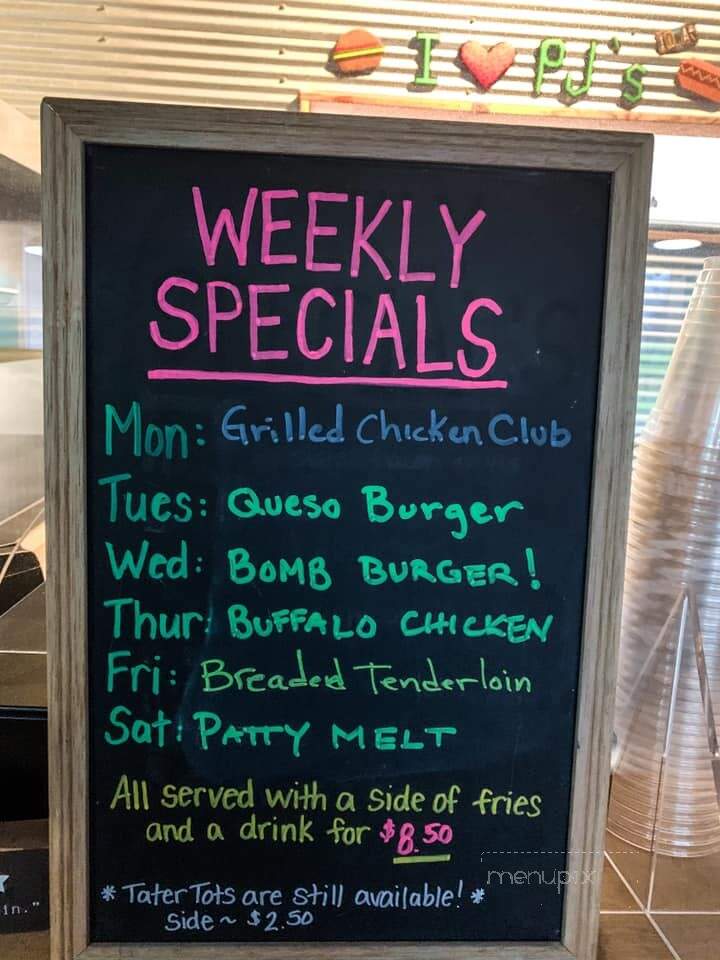 I ❤ PJ's
WEEKLY
SPECIALS
Mon: Grilled Chicken Club
Tues: Queso Burger
Wed: BOMB BURGER!
Thur: BUFFALO CHICKEN
Fri: Breaded Tenderloin
Sat: PATTY MELT
All served with a side of fries
and a drink for $8.50
* Tater Tots are still available! *
side ~ $2.50
in."
menupix